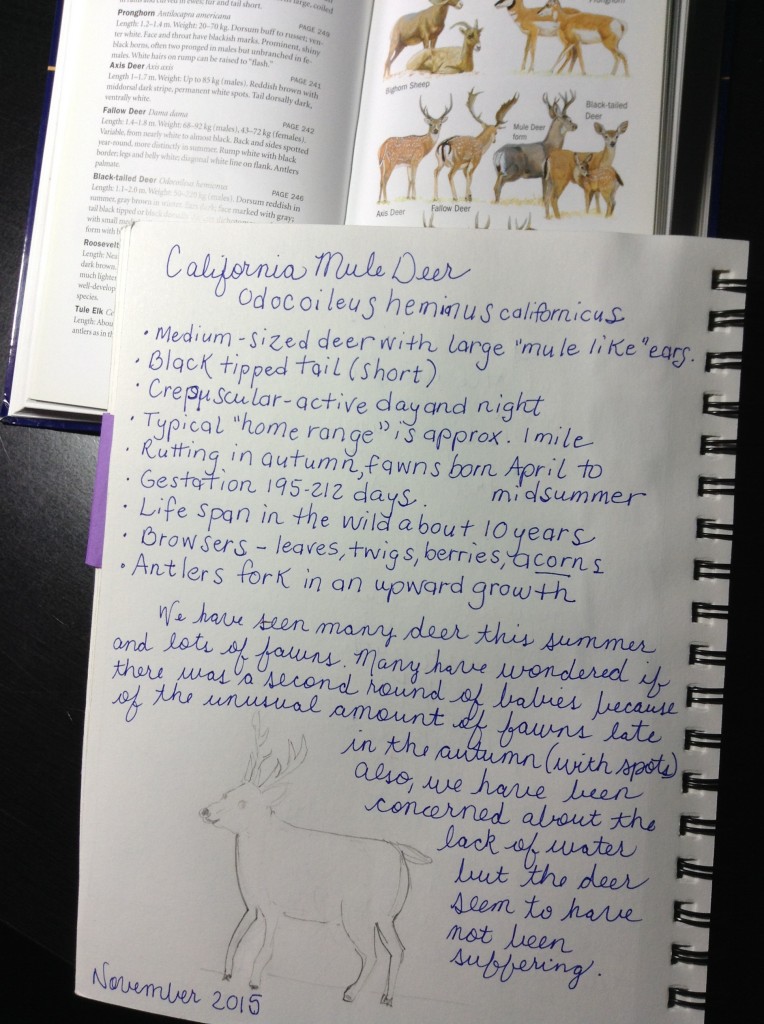 Pronghorn Antilocapra americana
PAGE 240
Length: 1.2–1.4 m. Weight: 20–70 kg. Dorsum buff to russet; ven-
ter white. Face and throat have blackish marks. Prominent, shiny
black horns, often two pronged in males but unbranched in fe-
males. White hairs on rump can be raised to "flash."
Axis Deer Axis axis
PAGE 241
Length 1–1.7 m. Weight: Up to 85 kg (males). Reddish brown with
middorsal dark stripe, permanent white spots. Tail dorsally dark,
ventrally white.
Fallow Deer Dama dama
PAGE 242
Length: 1.4–1.8 m. Weight: 68–92 kg (males), 43–72 kg (females).
Variable, from nearly white to almost black. Back and sides spotted
year-round, more distinctly in summer. Rump white with black
border; legs and belly white; diagonal white line on flank. Antlers
palmate.
Black-tailed Deer Odocoileus hemionus
PAGE 246
Length: 1.1–2.0 m. Weight: (males). Dorsum reddish in
summer, gray brown in winter. face marked with gray;
tail black tipped or black
with small
form with
Roosevelt
Length: Nea
dark brown,
much lighter
well-develop
species.
Tule Elk Ce
Length: Abou
antlers as in th
Pronghorn
Bighorn Sheep
Black-tailed
Deer
Mule Deer
form
Axis Deer
Fallow Deer
California Mule Deer
Odocoileus heminus californicus
• Medium-sized deer with large "mule like" ears.
• Black tipped tail (short)
• Crepuscular-active day and night
• Typical "home range" is approx. 1 mile
• Rutting in autumn, fawns born April to
midsummer
• Gestation 195-212 days.
• Life span in the wild about 10 years
• Browsers - leaves, twigs, berries, acorns
• Antlers fork in an upward growth
We have seen many deer this summer
and lots of fawns. Many have wondered if
there was a second round of babies because
of the unusual amount of fawns late
in the autumn (with spots)
Also, we have been
concerned about the
lack of water
but the deer
seem to have
not been
suffering.
November 2015